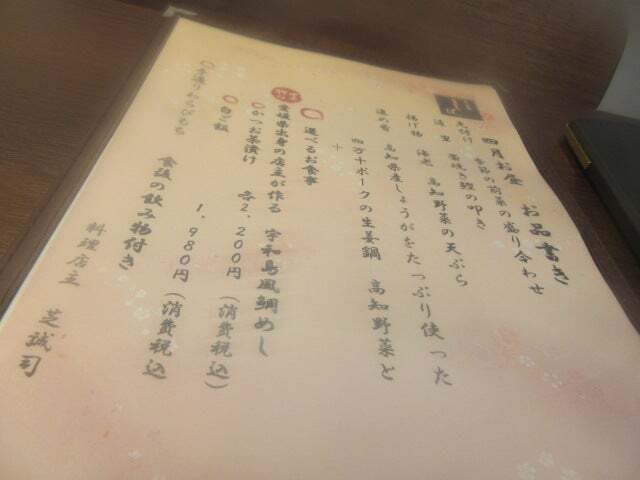 四月お昼 お品書き
先付け 季節の前菜の盛り合わせ
造里 藁焼き鰹の叩き
揚げ物 海老 高知野菜の天ぷら
進の肴 高知県産しょうがをたっぷり使った
四万十ポークの生姜鍋 高知野菜と
+
選べるお食事
愛媛県出身の店主が作る 宇和島風鯛めし
かつお茶漬け 各2,200円(消費税込)
白ご飯 1,980円(消費税込
手造りわらびもち 食後の飲み物付き
料理店主 芝誠司